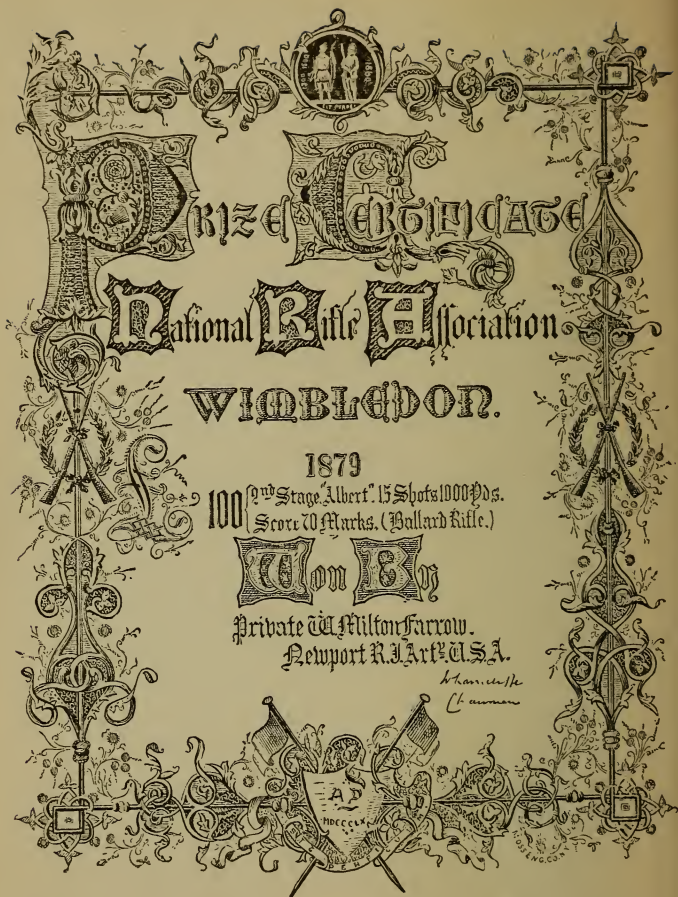 Prize Certificate
National Rifle Association
WIMBLEDON.
1879
£100 { 2nd Stage "Albert". 15 Shots 1000 Yds.
Score 70 Marks. (Ballard Rifle.)
Won By
Private W. Milton Farrow.
Newport R.I. Arty. U.S.A.
Wharncliffe
Chairman
A.D
MDCCCLX